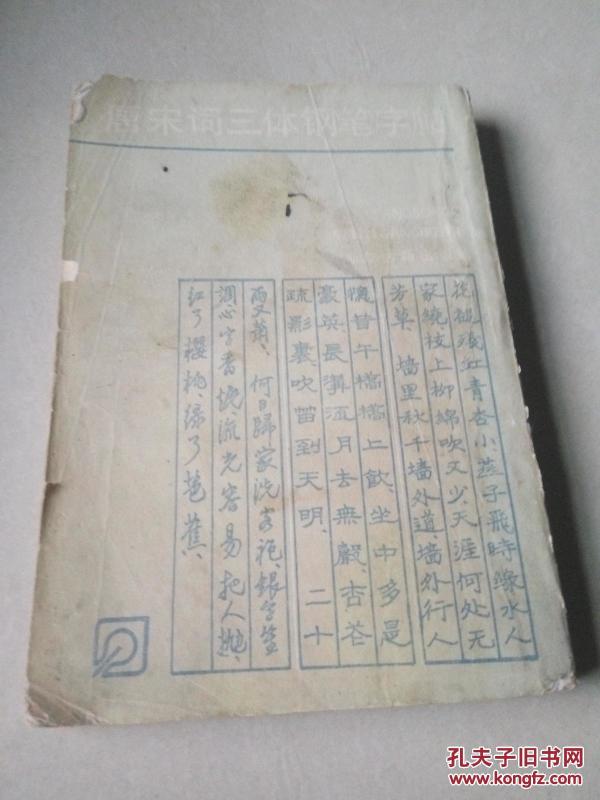 唐宋词三体钢笔字帖
花褪残红青杏小、燕子飛時綠水人
家繞枝上柳綿吹又少、天涯何处无
芳草、墙里秋千墙外道、墙外行人
憶昔午橋橋上飲、坐中多是
豪英長溝流月去無聲、杏花
疏影裏、吹笛到天明、二十
雨又蕭、何日歸家洗客袍、銀字笙
調、心字香燒、流光容易把人抛、
紅了櫻桃、綠了芭蕉、
孔夫子旧书网
www.kongfz.com